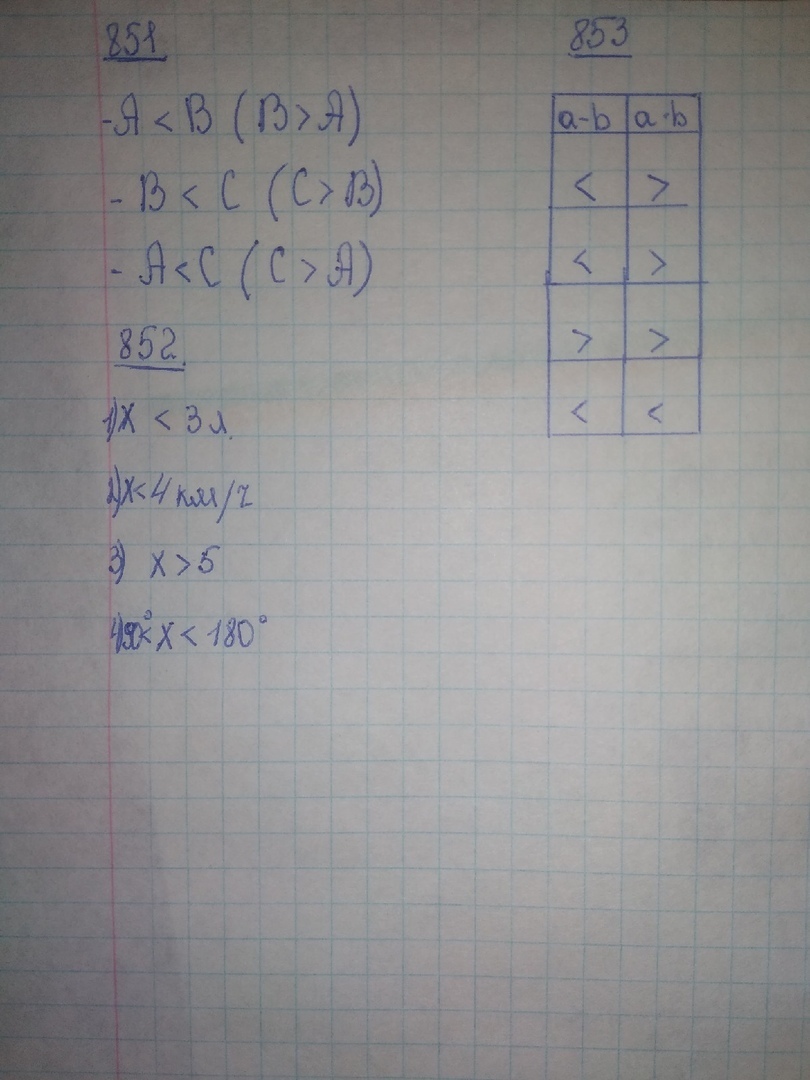 851
-A < B (B > A)
- B < C (C > B)
- A < C (C > A)
852.
1) x < 3 л.
2) x < 4 км/ч
3) x > 5
4) 90° < x < 180°
853
a-b a·b
< >
< >
> >
< <